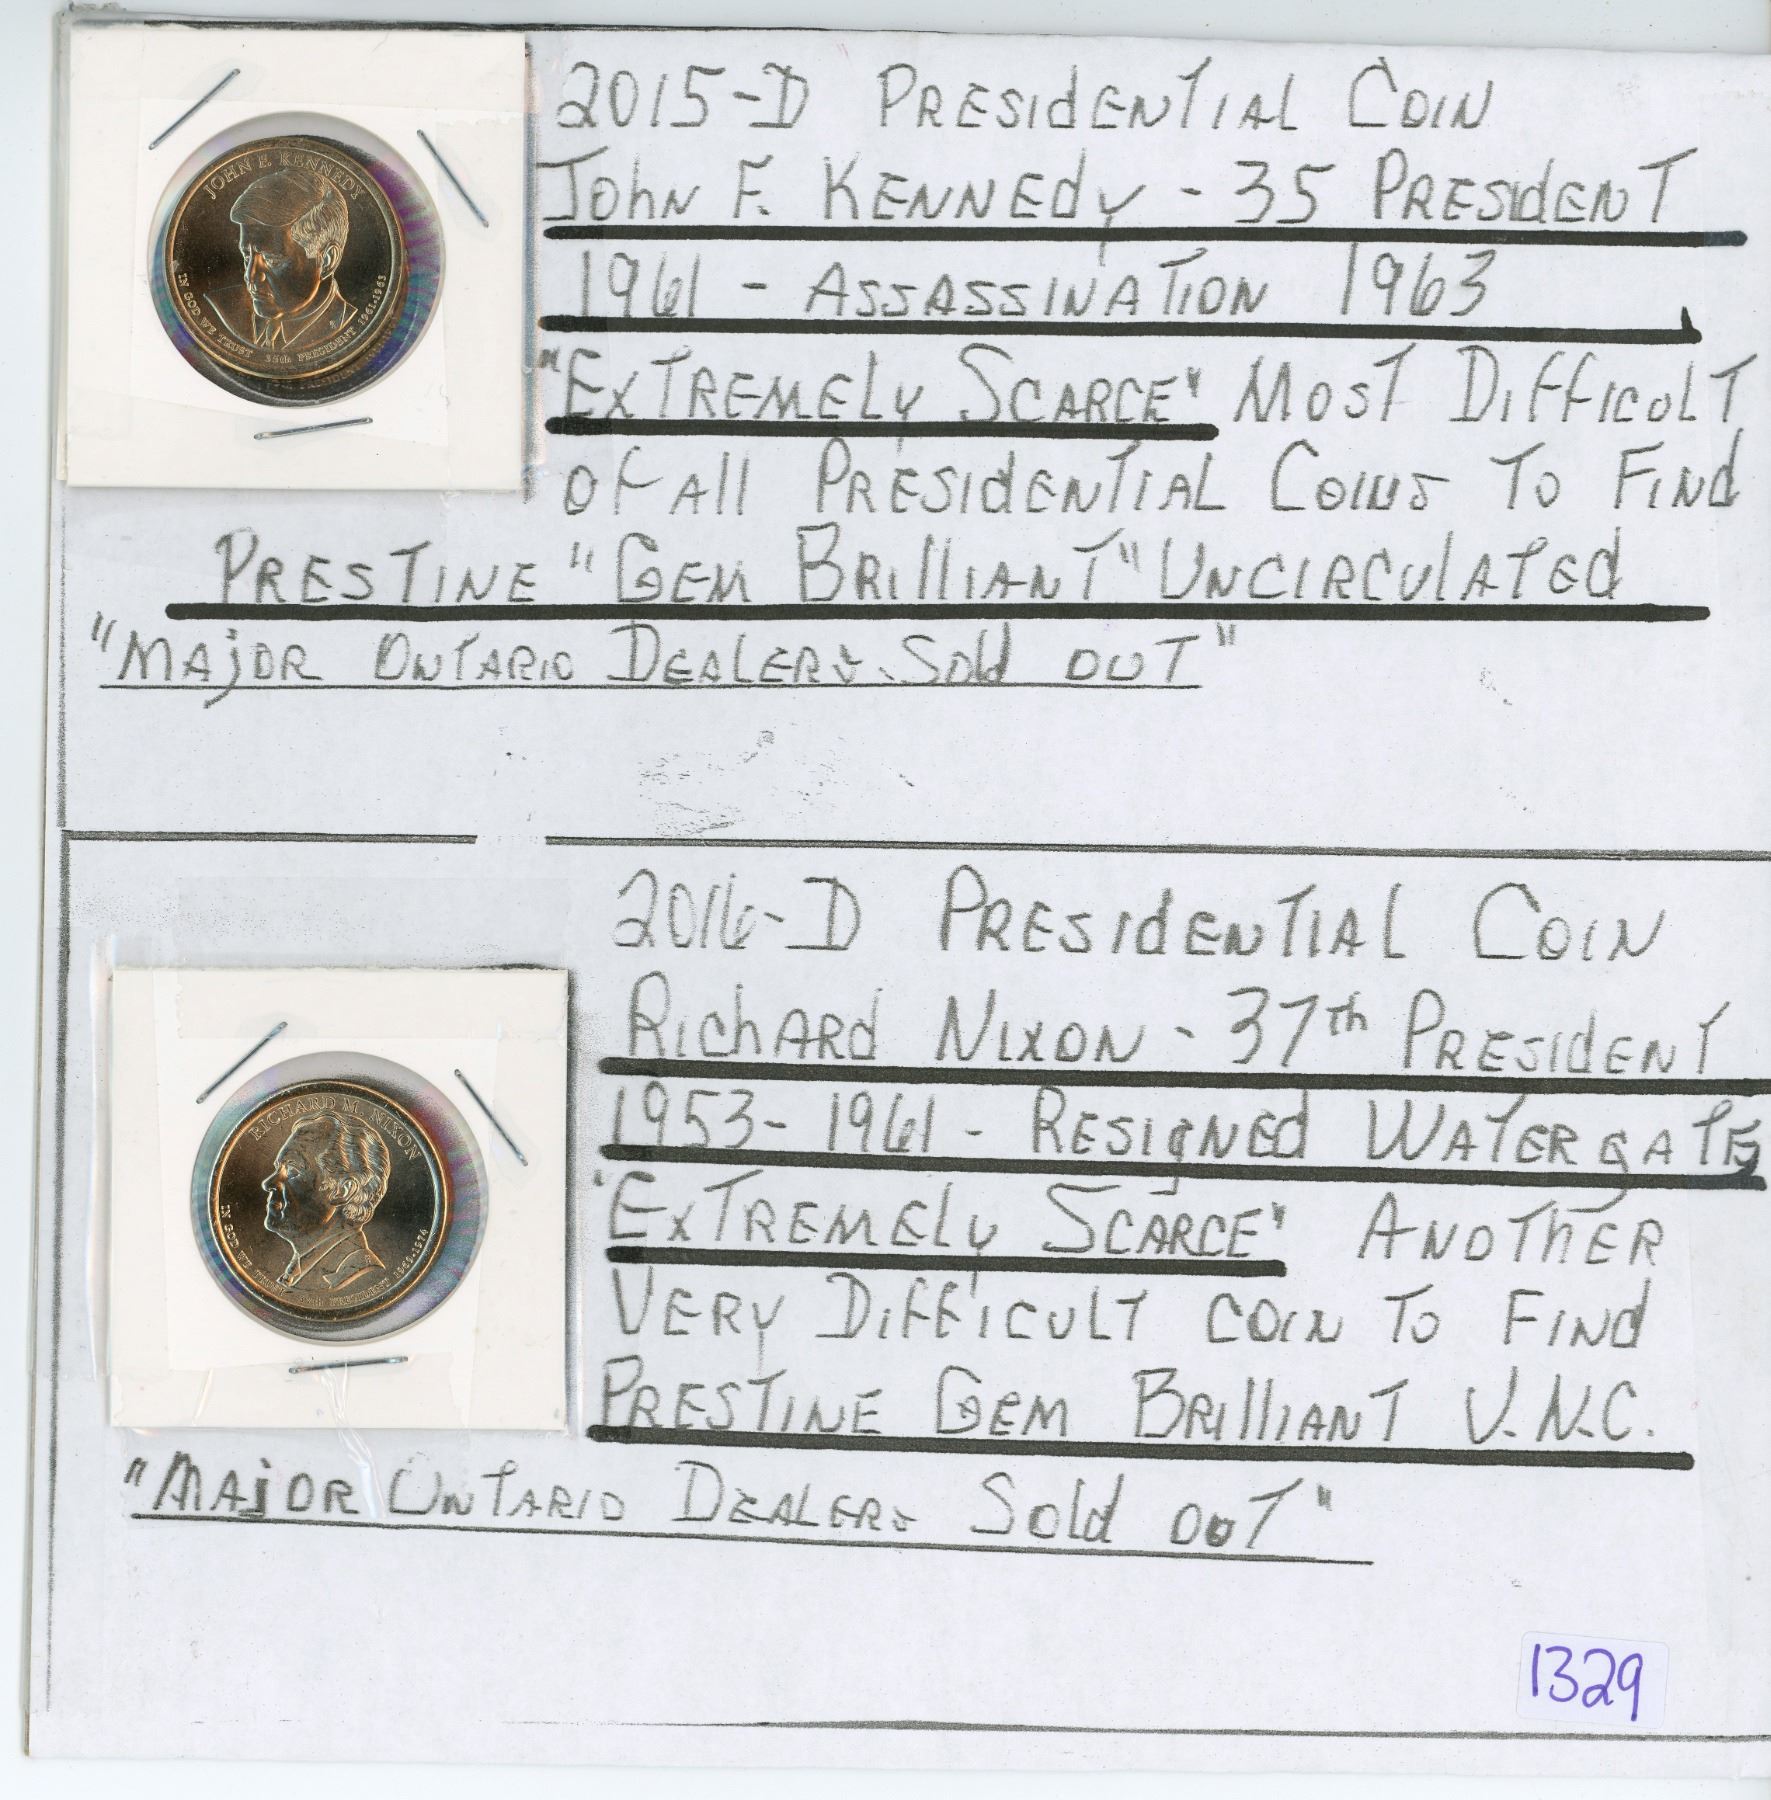 2015-D PRESIdENTIAL COIN
JOhN F. KENNEdy - 35 PRESIdENT
1961 - ASSASSINATION 1963
"EXTREMELy SCARCE" MOST DIffICULT
Of All PRESIdENTIAL COINS TO FINd
PRESTINE "GEM BRIllIANT" UNCIRCULATEd
"MAjOR ONTARIO DEALERS SOld OUT"
JOHN F. KENNEDY
IN GOD WE TRUST 35th PRESIDENT 1961-1963
2016-D PRESIdENTIAL COIN
RIChARd NIXON - 37th PRESIdENT
1953-1961 - RESIgNEd WATERgATE
"EXTREMELy SCARCE" ANOThER
VERy DIffICULT COIN TO FINd
PRESTINE GEM BRIllIANT U.N.C.
"MAjOR ONTARIO DEALERS SOld OUT"
RICHARD M. NIXON
IN GOD WE TRUST 37th PRESIDENT 1969-1974
1329